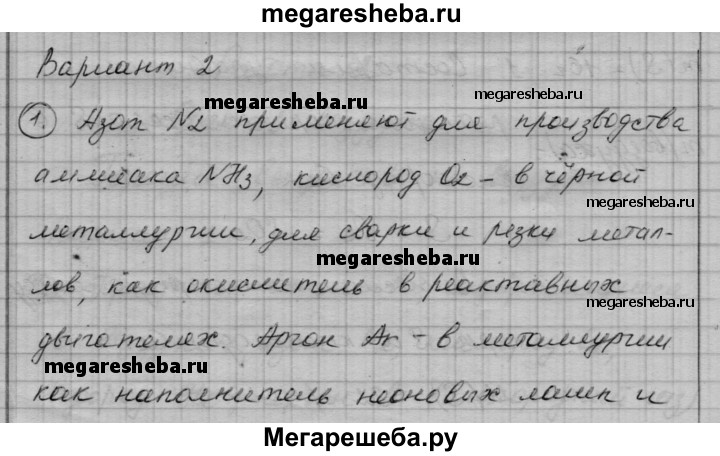 megaresheba.ru
Вариант 2
megaresheba.ru
megaresheba.ru
1. Азот N2 применяют для производства
аммиака NH3, кислород O2 - в чёрной
megaresheba.ru
металлургии, для сварки и резки метал-
megaresheba.ru
лов, как окислитель в реактавных
megaresheba.ru
двигателях. Аргон Ar - в металлургии
megaresheba.ru
megaresheba.ru
как наполнитель неоновых ламп и
Мегарешеба.ру